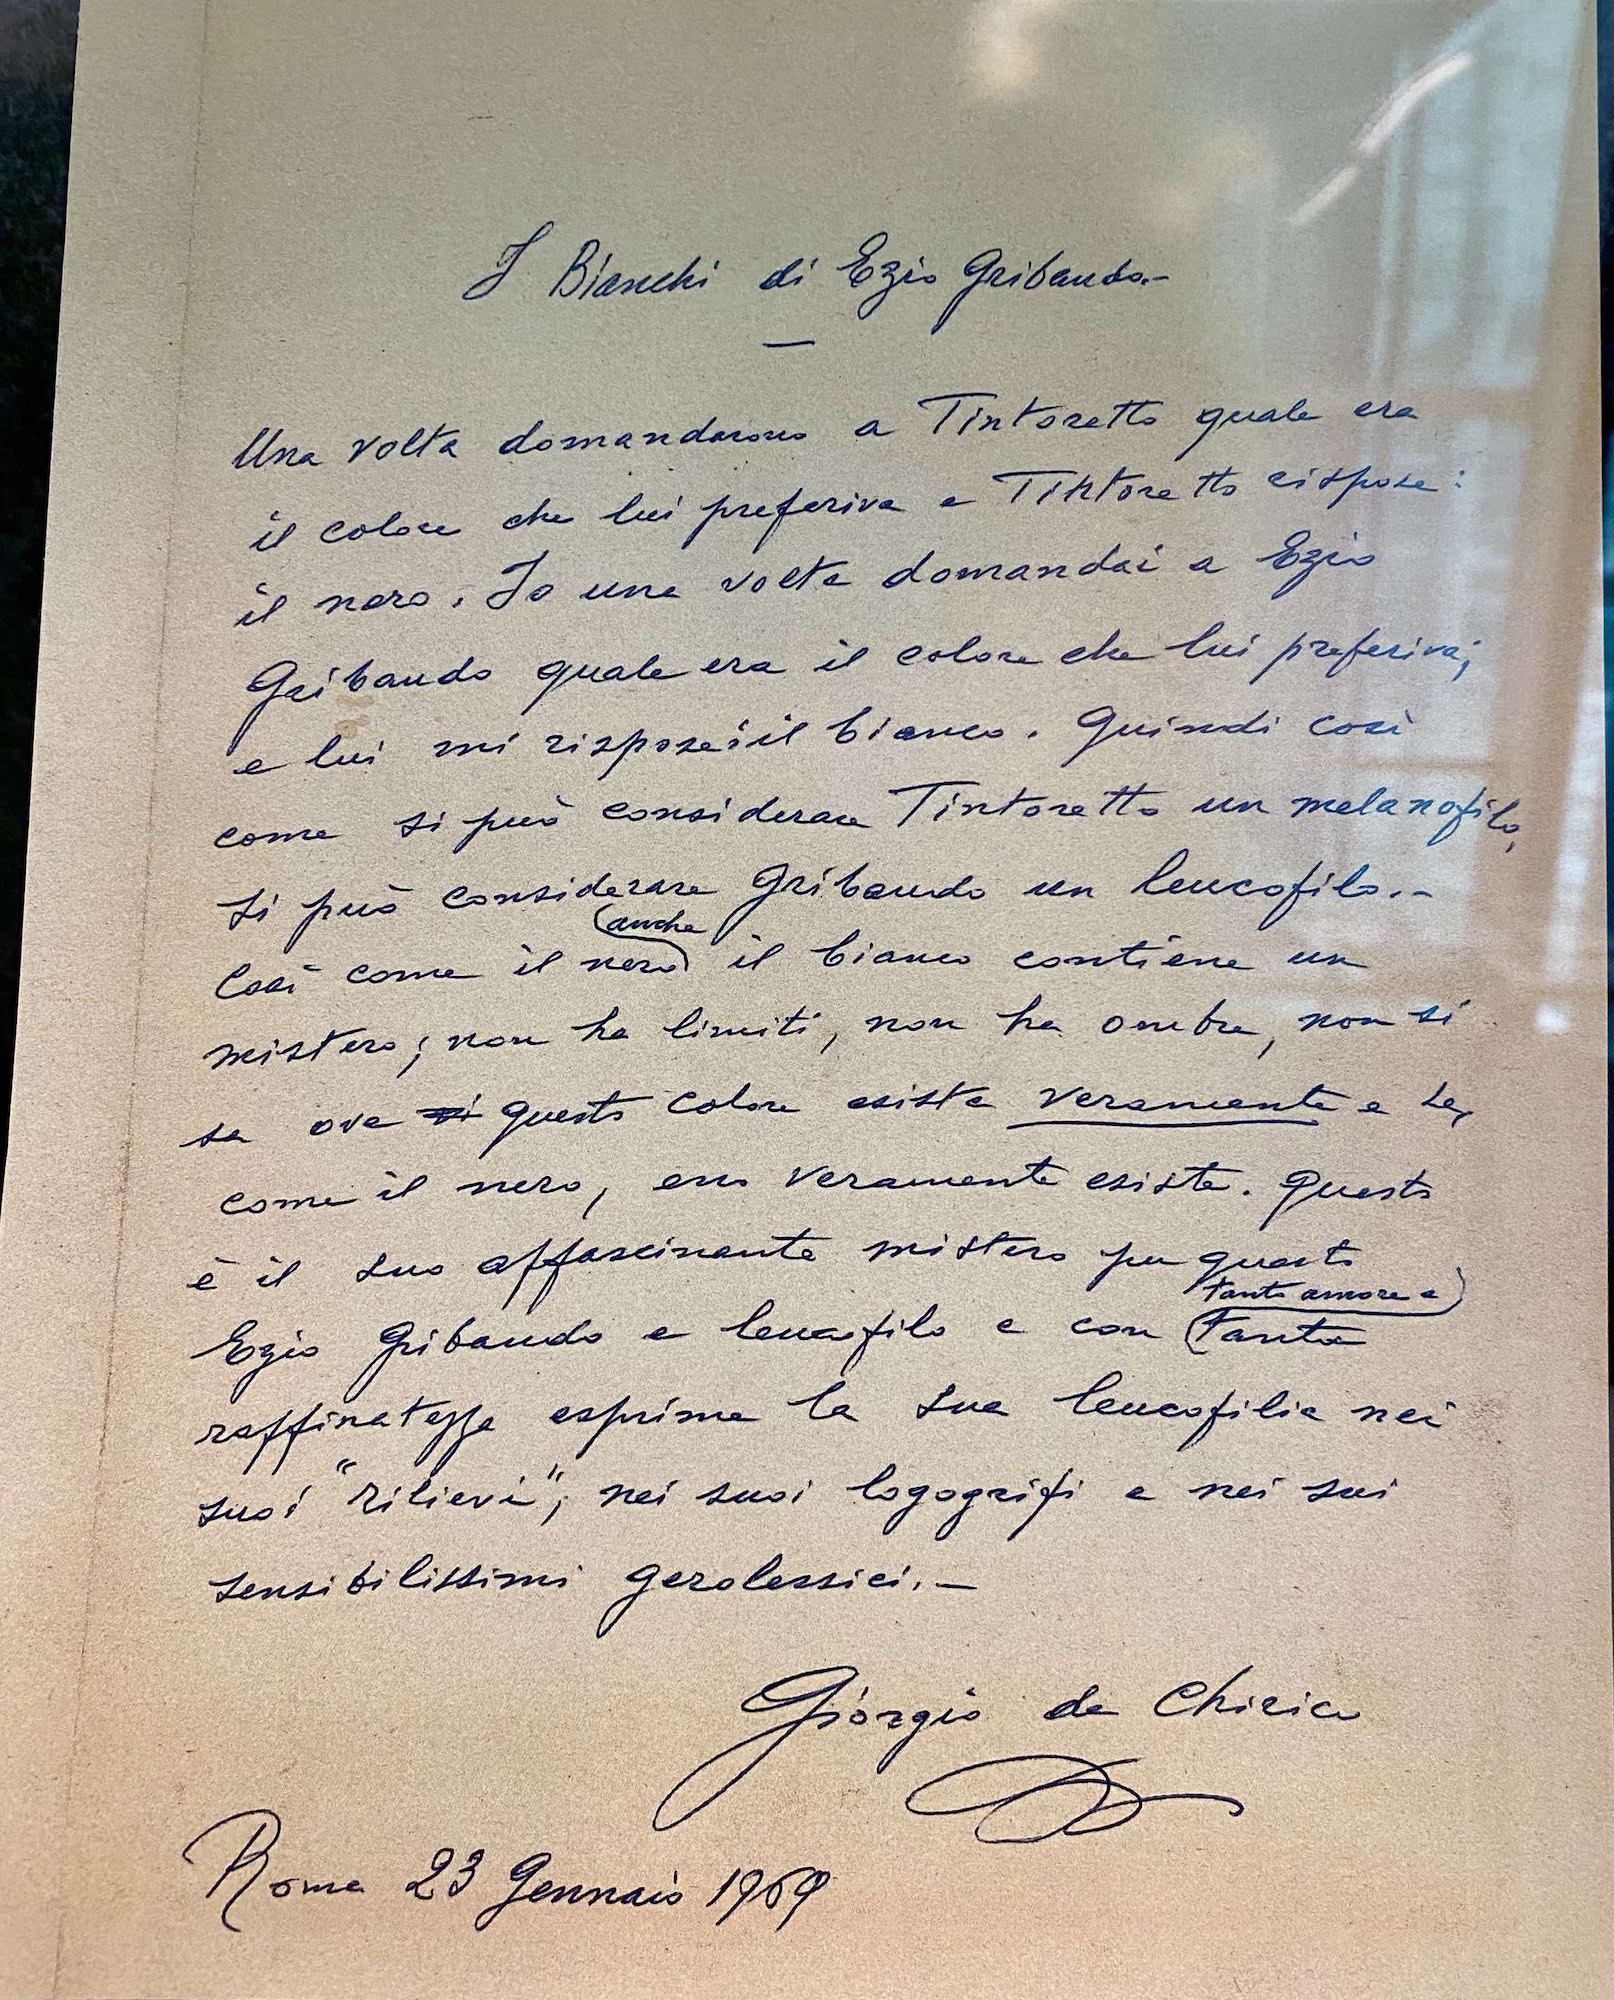 I Bianchi di Ezio Gribaudo.-
Una volta domandarono a Tintoretto quale era
il colore che lui preferiva e Tintoretto rispose:
il nero. Io una volta domandai a Ezio
Gribaudo quale era il colore che lui preferiva;
e lui mi rispose: il bianco. Quindi così
come si può considerare Tintoretto un melanofilo,
si può considerare Gribaudo un leucofilo.-
anche
Così come il nero il bianco contiene un
mistero; non ha limiti, non ha ombre, non si
sa ove questo colore esiste veramente e se,
come il nero, esso veramente esiste. Questo
è il suo affascinante mistero per questo
tanto amore e
Ezio Gribaudo e leucofilo e con tanta
raffinatezza esprime la sua leucofilia nei
suoi "rilievi", nei suoi logogrifi e nei suoi
sensibilissimi geroglessici.-
Giorgio de Chirico
Roma 23 Gennaio 1969